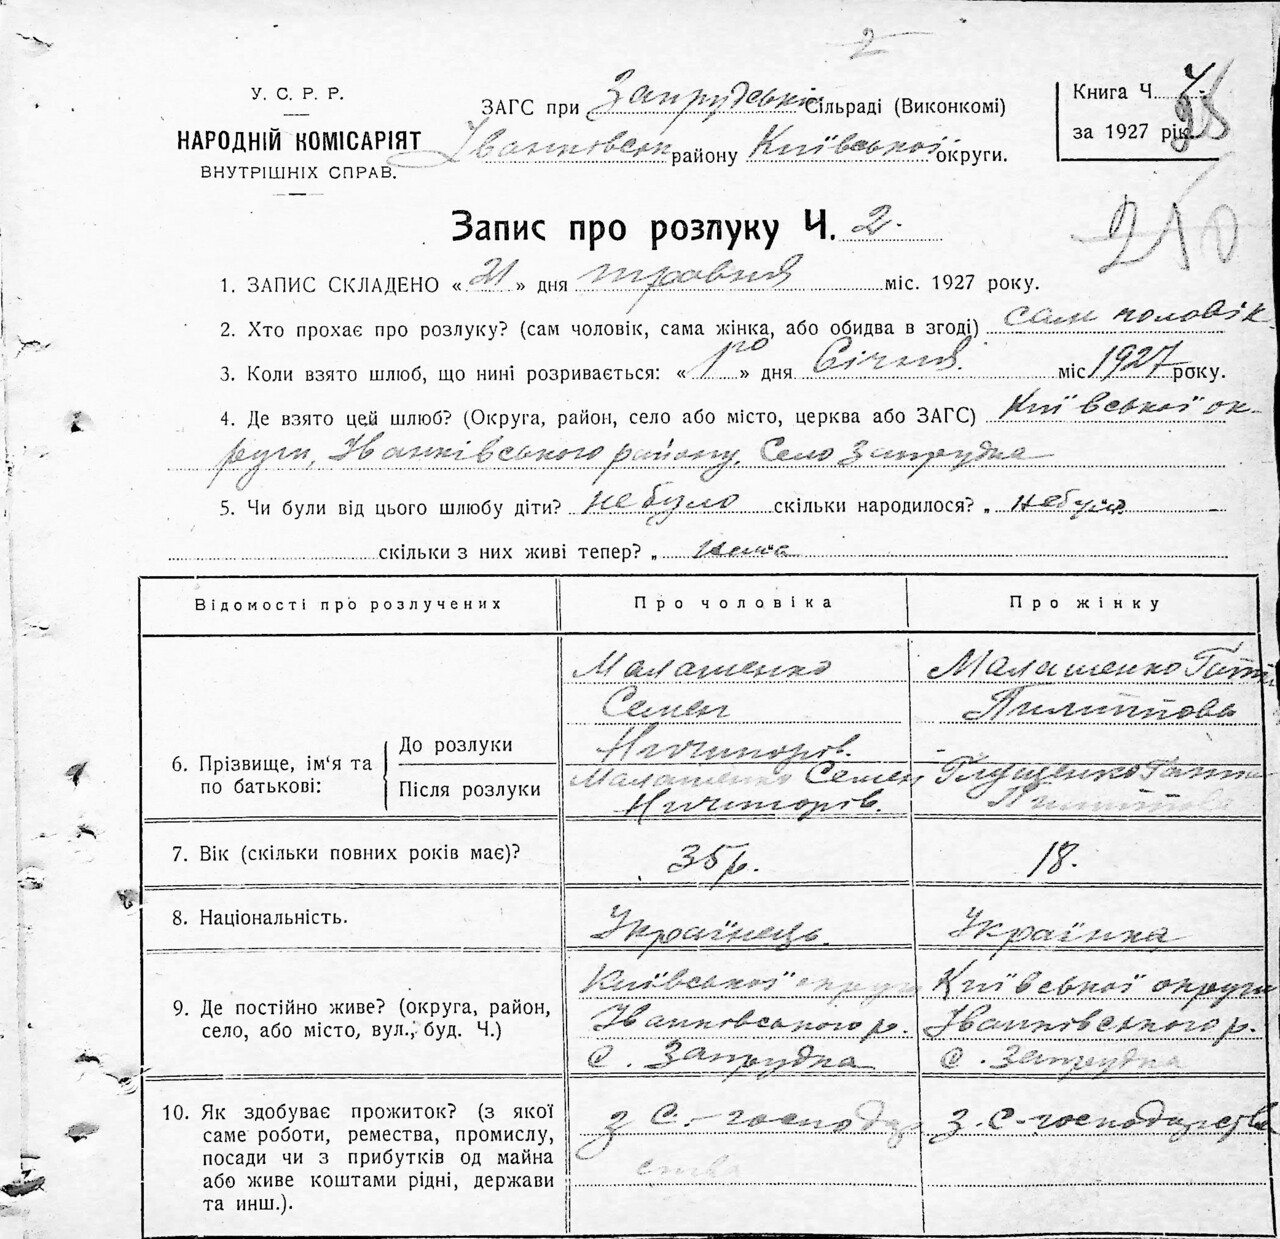 2
У. С. Р. Р.
НАРОДНІЙ КОМІСАРІЯТ
ВНУТРІШНІХ СПРАВ.
ЗАГС при Запрудські Сільраді (Виконкомі)
Іванковськ району Київської округи.
Книга Ч.
за 1927 рік
Запис про розлуку Ч. 2.
210
1. ЗАПИС СКЛАДЕНО « 21 » дня травня міс. 1927 року.
2. Хто прохає про розлуку? (сам чоловік, сама жінка, або обидва в згоді) сам чоловік
3. Коли взято шлюб, що нині розривається: « 1го » дня Січня. міс 1927 року.
4. Де взято цей шлюб? (Округа, район, село або місто, церква або ЗАГС) Київської ок-
руги, Іванківського району. Село Запрудка
5. Чи були від цього шлюбу діти? не було скільки народилося? „ не було
скільки з них живі тепер? „ нема
Відомості про розлучених
Про чоловіка
Про жінку
6. Прізвище, ім'я та по батькові:
До розлуки
Малашенко
Семен
Ничипоров.
Малашенко Ганна
Пилиппова
Після розлуки
Малашенко Семен
Ничипорів.
Глущенко Ганна
Пилиппова
7. Вік (скільки повних років має)?
35 р.
18.
8. Національність.
Українець
Українка
9. Де постійно живе? (округа, район,
село, або місто, вул., буд. Ч.)
Київської округи
Іванковського р.
с. Запрудка
Київської округи
Іванковського р.
с. Запрудка
10. Як здобуває прожиток? (з якої
саме роботи, ремества, промислу,
посади чи з прибутків од майна
або живе коштами рідні, держави
та инш.).
з С.-господар
ства
з. С-господарства